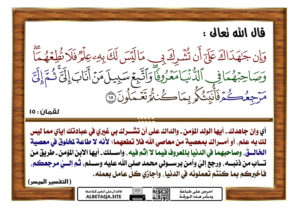 قال الله تعالى :
وَإِن جَٰهَدَاكَ عَلَىٰٓ أَن تُشْرِكَ بِى مَا لَيْسَ لَكَ بِهِۦ عِلْمٌ فَلَا تُطِعْهُمَا ۖ
وَصَاحِبْهُمَا فِى ٱلدُّنْيَا مَعْرُوفًا ۖ وَٱتَّبِعْ سَبِيلَ مَنْ أَنَابَ إِلَىَّ ۚ ثُمَّ إِلَىَّ
مَرْجِعُكُمْ فَأُنَبِّئُكُم بِمَا كُنتُمْ تَعْمَلُونَ ١٥
لقمان : ١٥
أي وإن جاهدك.. أيها الولد المؤمن.. والداك على أن تشرك بي غيري في عبادتك إياي مما ليس
لك به علم، أو أمراك بمعصية من معاصي الله فلا تطعهما؛ لأنه لا طاعة لمخلوق في معصية
الخالق.. وصاحبهما في الدنيا بالمعروف فيما لا إثم فيه.. واسلك.. أيها الابن المؤمن.. طريق من
تاب من ذنبه.. ورجع إليّ وآمن برسولي محمد صلى الله عليه وسلم.. ثم إليّ مرجعكم..
فأخبركم بما كنتم تعملونه في الدنيا.. وأجازي كل عامل بعمله..
( التفسير الميسر )
احرص على طباعة
ونشر هذه الورقة
ALBETAQA.SITE